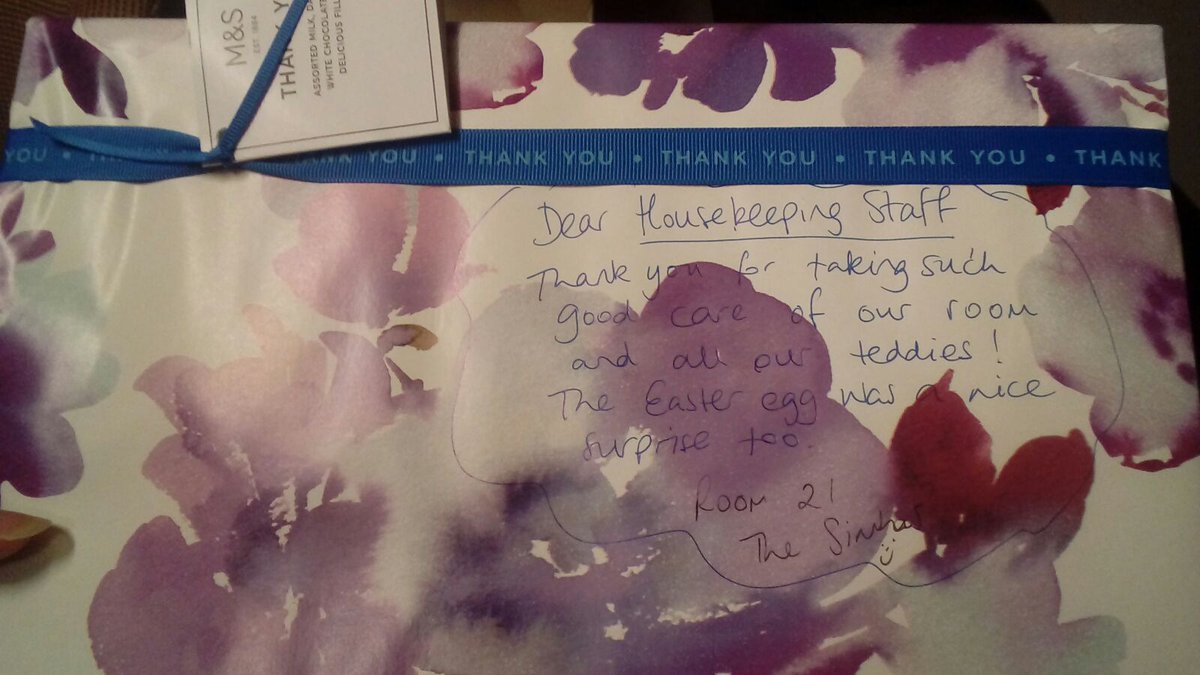 M&S
EST. 1884
THANK Y
ASSORTED MILK, DA
WHITE CHOCOLATE
DELICIOUS FILL
YOU • THANK YOU • THANK YOU • THANK YOU • THANK YOU • THANK
Dear Housekeeping Staff
Thank you for taking such
good care of our room
and all our teddies!
The Easter egg was a nice
surprise too.
Room 21
The